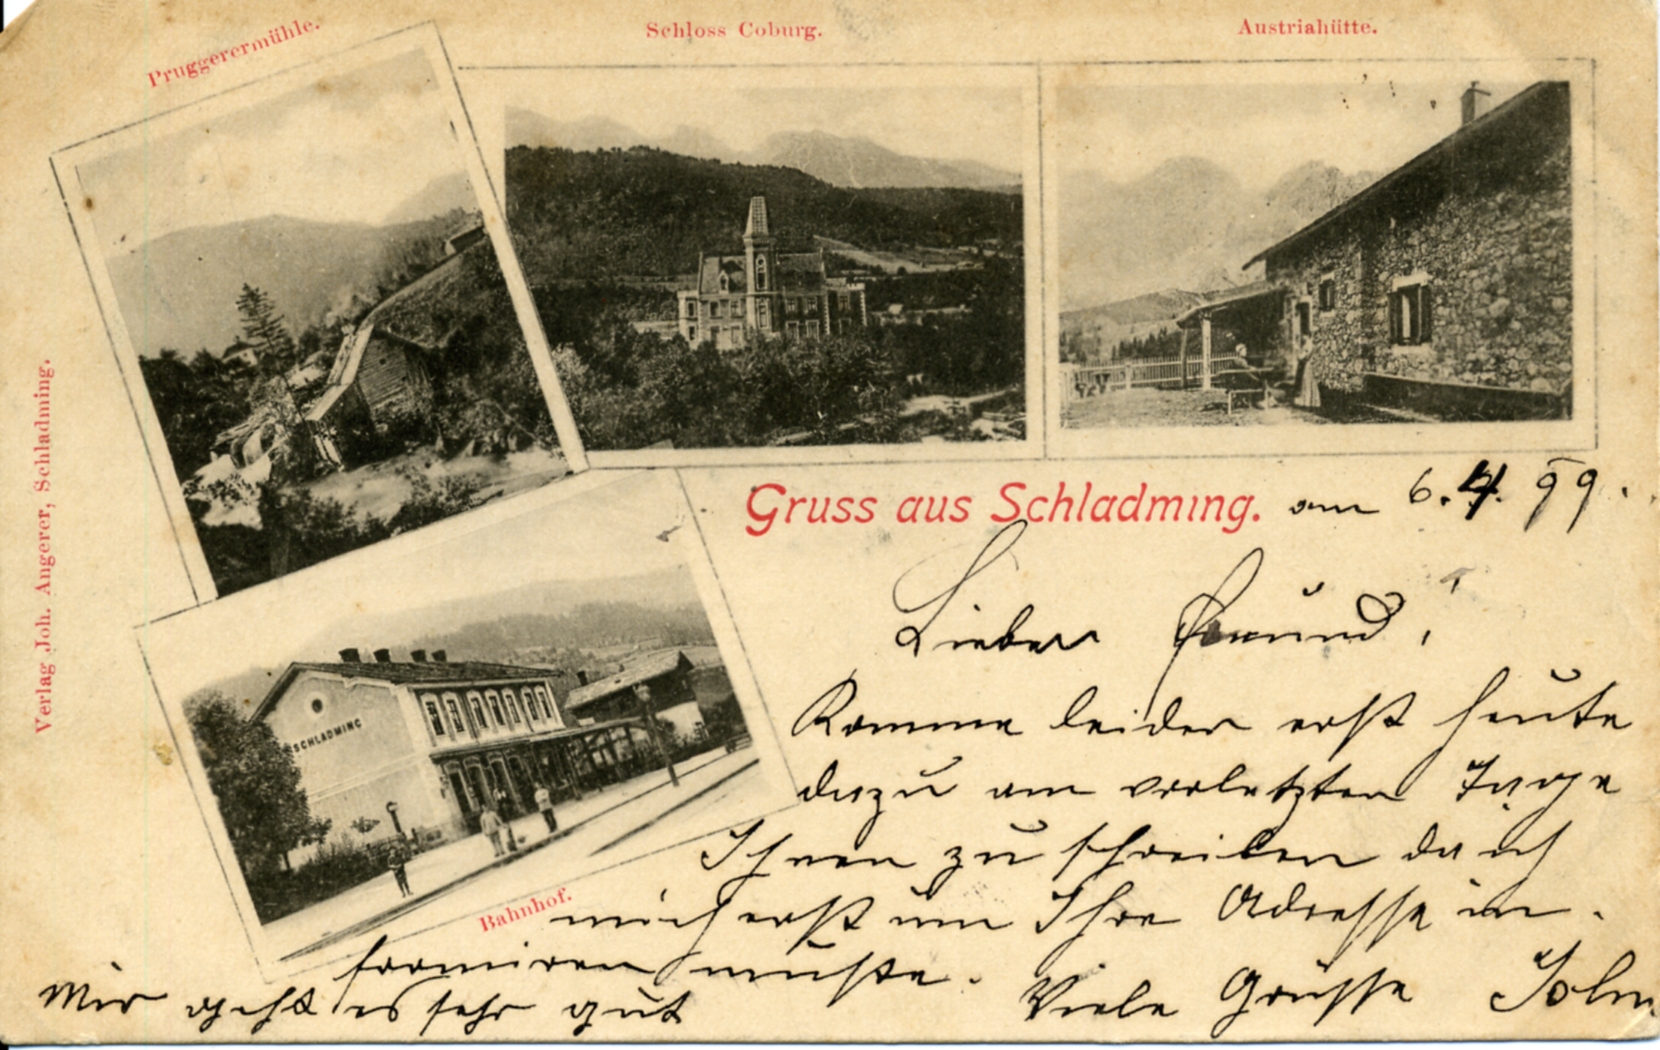 Pruggerermühle.
Schloss Coburg.
Austriahütte.
Verlag Joh. Angerer, Schladming.
Gruss aus Schladming. am 6.4.99.
Lieber Freund!
Komme leider erst heute
dazu am vorletzten Tage
Ihnen zu schreiben da ich
mich erst um Ihre Adresse in-
formiren mußte.
Viele Grüsse
Mir geht es sehr gut
SCHLADMING
Bahnhof.